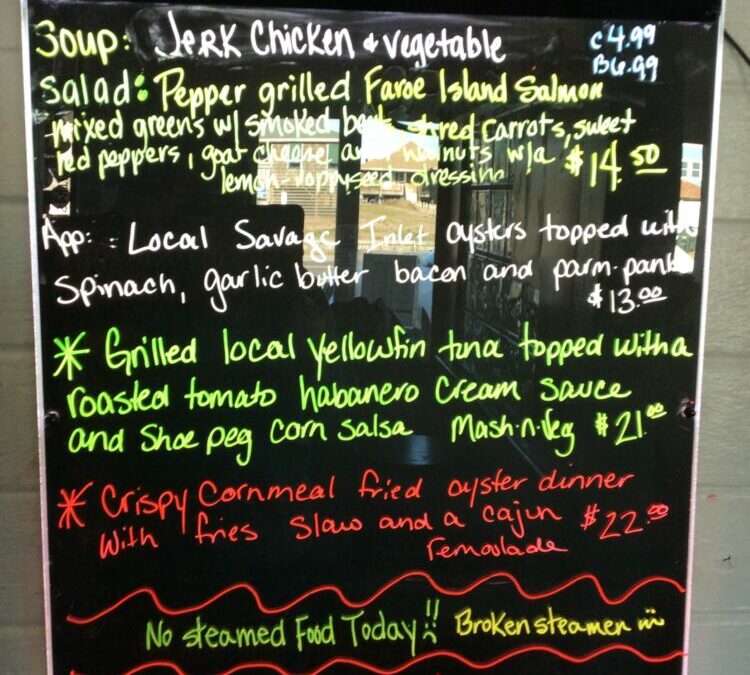 Soup: Jerk Chicken & vegetable C 4.99
B 6.99
Salad: Pepper grilled Faroe Island Salmon
mixed greens w/ smoked beets, shred carrots, sweet
red peppers, goat cheese and walnuts w/a $14.50
lemon-poppyseed dressing
App: Local Savage Inlet oysters topped with
Spinach, garlic butter bacon and parm-panko
$13.00
* Grilled local yellowfin tuna topped with a
roasted tomato habanero cream sauce
and Shoe peg corn salsa Mash-n-Veg $21.00
* Crispy Cornmeal fried oyster dinner
with fries slaw and a cajun $22.00
remoulade
No steamed Food Today!! Broken steamer